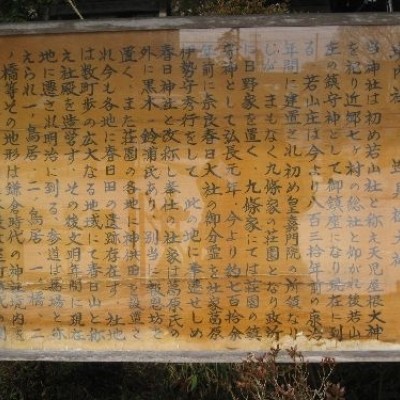 当神社は初め若山社と称え天児屋根大神
を祀り近郷七ヶ村の総社と仰がれ後若山
庄の鎮守神として御鎮座になり現在に到
る 若山庄は今より八百三十年前の康治
年間に建置され初め皇嘉門院の所領なり
しが まもなく九條家の荘園となり政所
に日野家を置く 九條家にては荘園の鎮
守神として弘長元年 今より約七百拾余
年前に奈良春日大社の御分霊を社家葛原
伊勢守秀行をして 此の地に奉遷せしめ
春日神社と改称し奉仕の社家は葛原氏の
外に黒木 鈴浦氏あり 別当に
置く また荘園の各地に神供田を設置さ
れ今も各地に春日田の遺跡存す 社地
は数町歩の広大なる地域にて春日山と称
え社殿を造営す その後文明年間に現在
地に遷され明治に到る 参道は馬場と称
えられ 一、鳥居 二、鳥居 一、橋 二、
橋等その地形は鎌倉時代の神社境内を